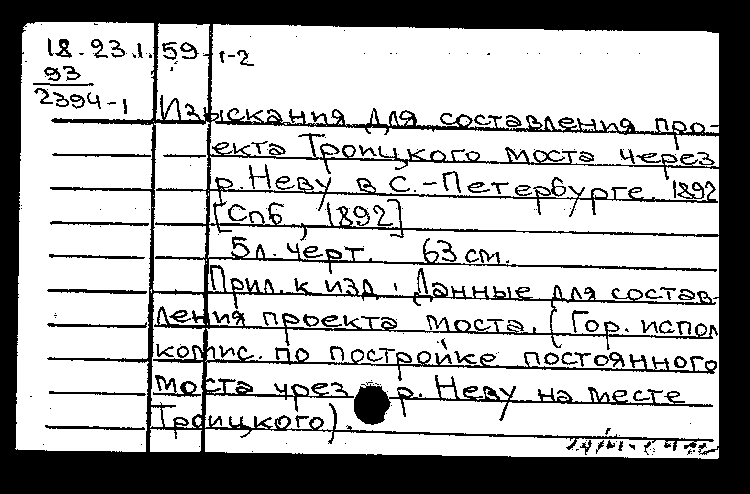 18.23.1.59-1-2
93
2394-1
Изыскания для составления про-
екта Троицкого моста через
р. Неву в С.-Петербурге. 1892
[Спб, 1892]
5 л. черт. 63 см.
Прил. к изд.: Данные для состав-
ления проекта моста. (Гор. испол
комис. по постройке постоянного
моста чрез р. Неву на месте
Троицкого).